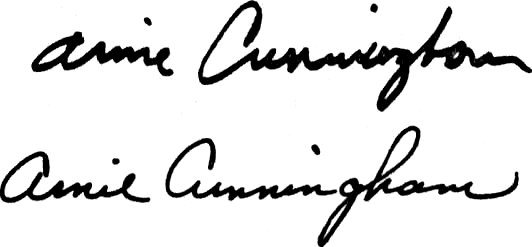 Arnie Cunningham
Arnie Cunningham